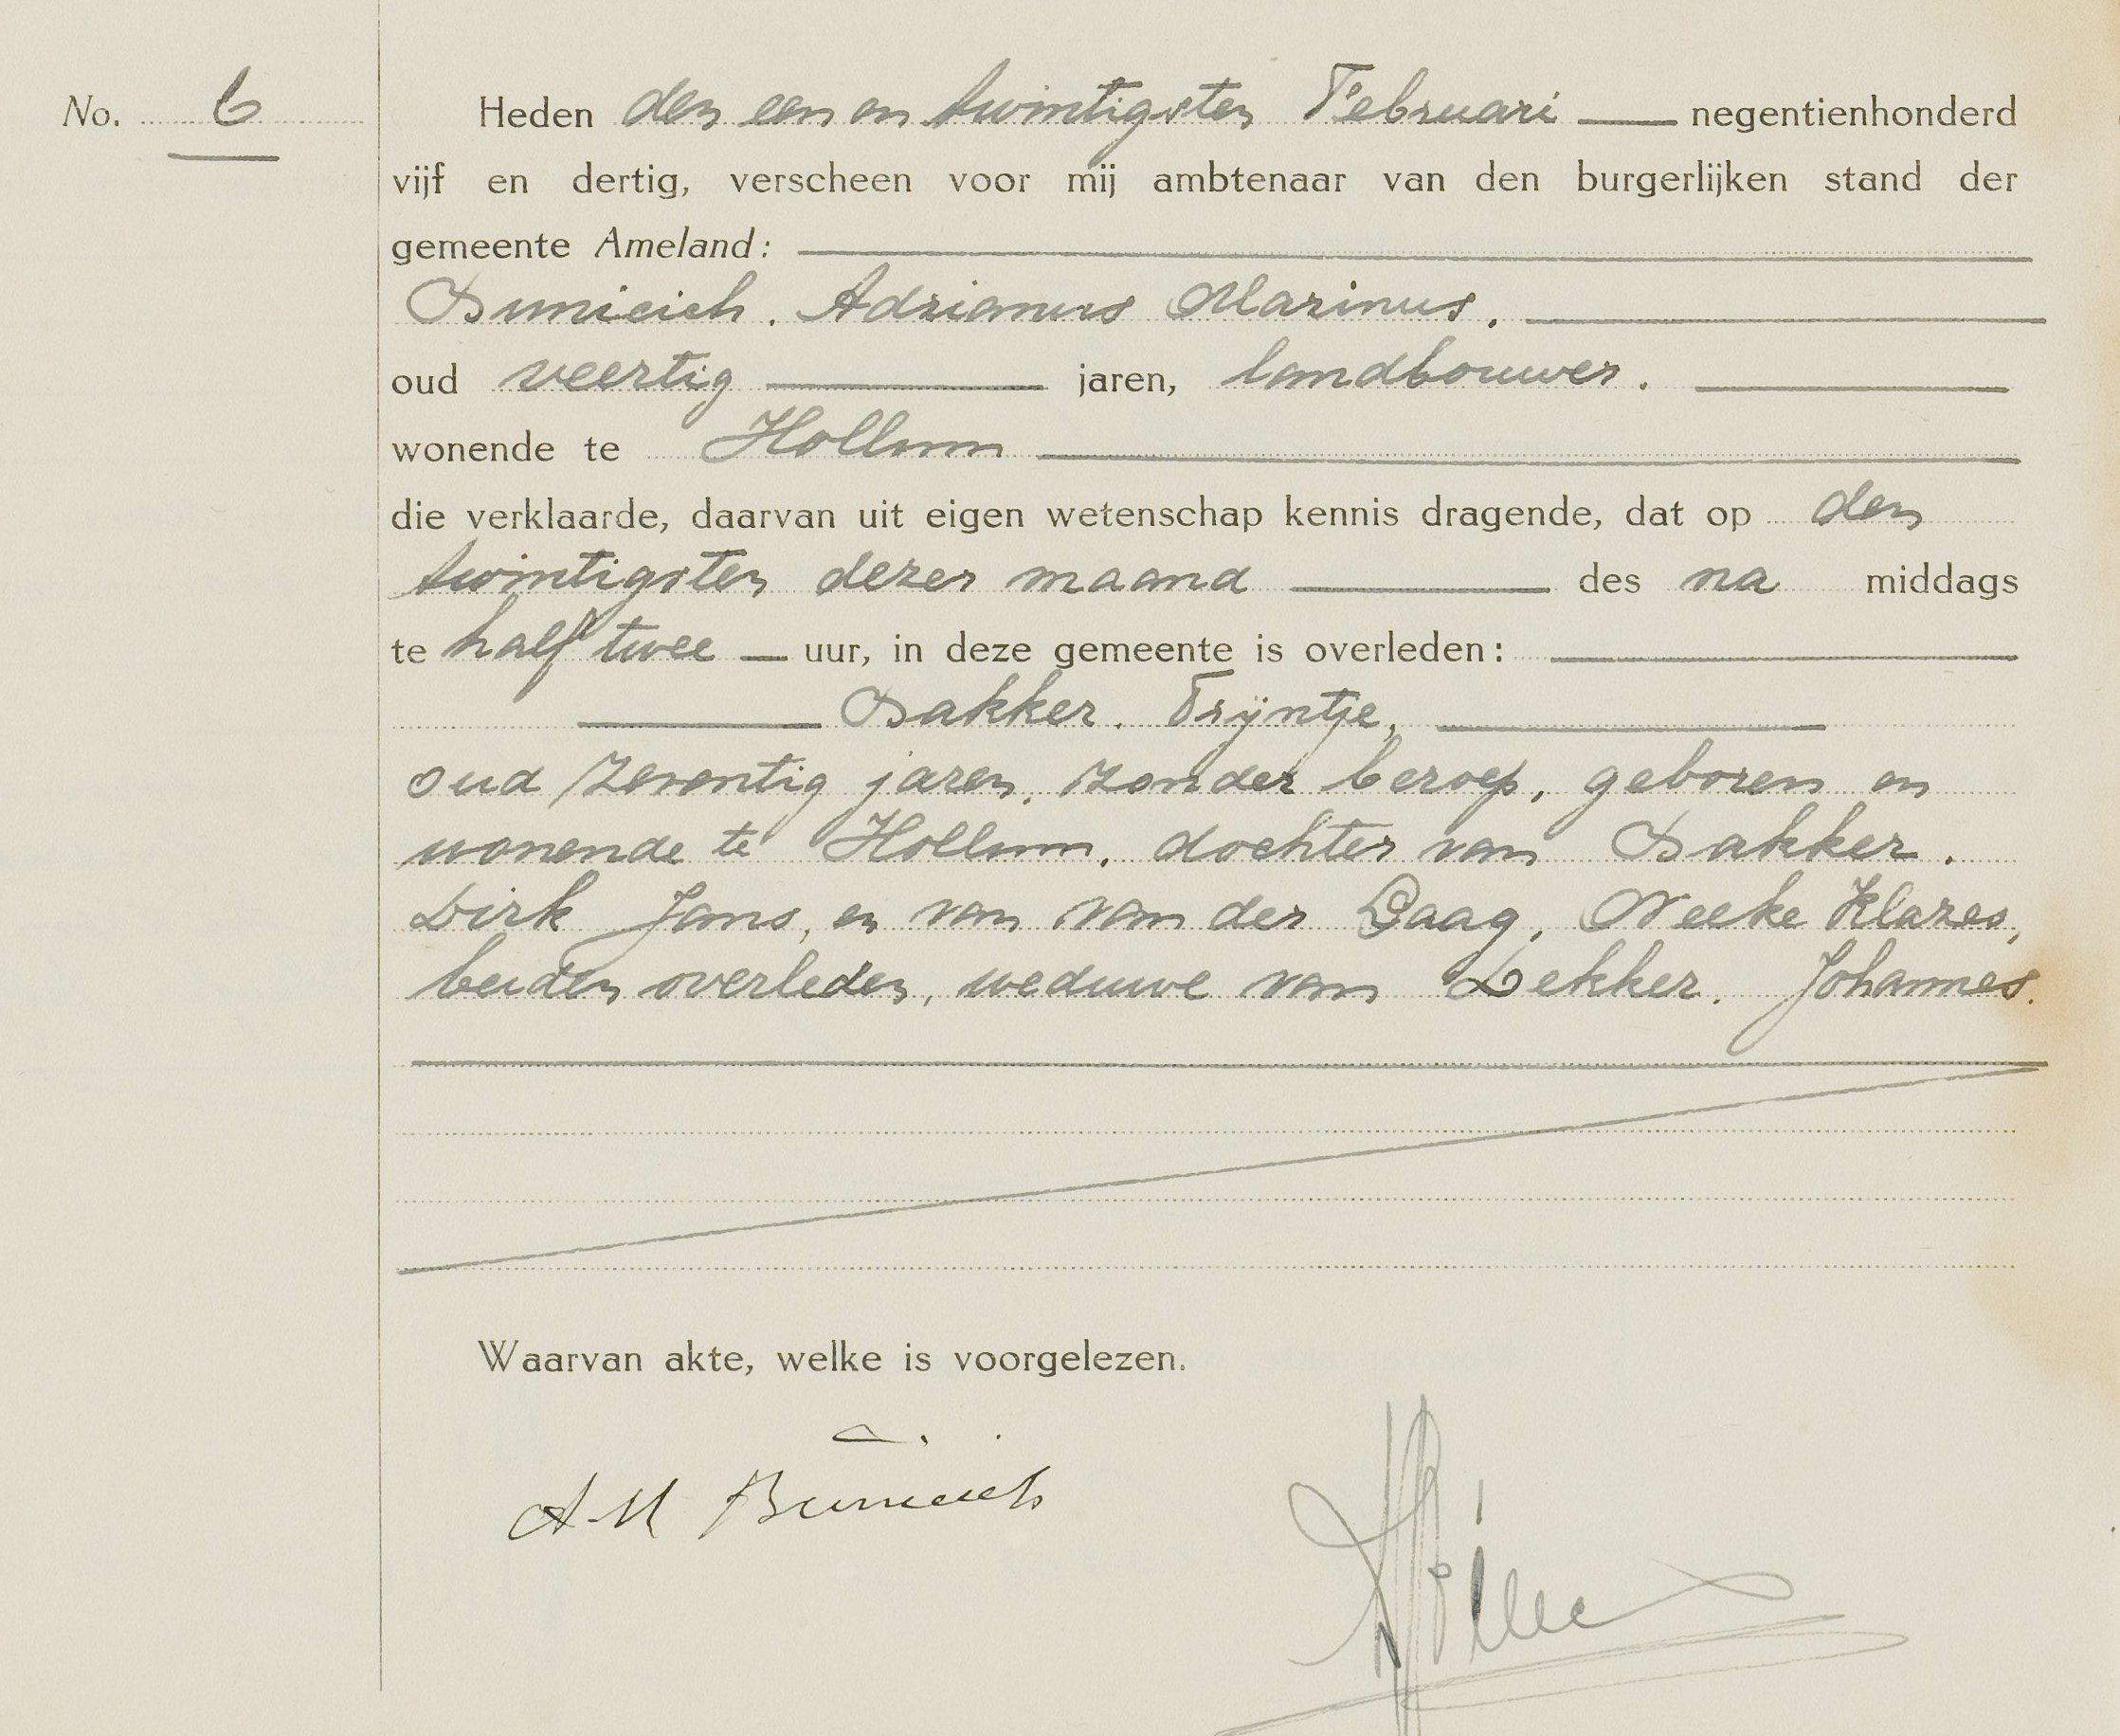 No. 6
Heden den een en twintigsten Februari negentienhonderd
vijf en dertig, verscheen voor mij ambtenaar van den burgerlijken stand der
gemeente Ameland:
Bunicich. Adrianus Marinus.
oud veertig jaren, landbouwer.
wonende te Hollum
die verklaarde, daarvan uit eigen wetenschap kennis dragende, dat op den
twintigsten dezer maand des na middags
te half twee uur, in deze gemeente is overleden:
Bakker. Trijntje,
oud zeventig jaren, zonder beroep, geboren en
wonende te Hollum, dochter van Bakker.
Dirk Jans, en van van der Laag, Neeke Klazes,
beiden overleden, weduwe van Dekker. Johannes.
Waarvan akte, welke is voorgelezen.
A. M Bunicich